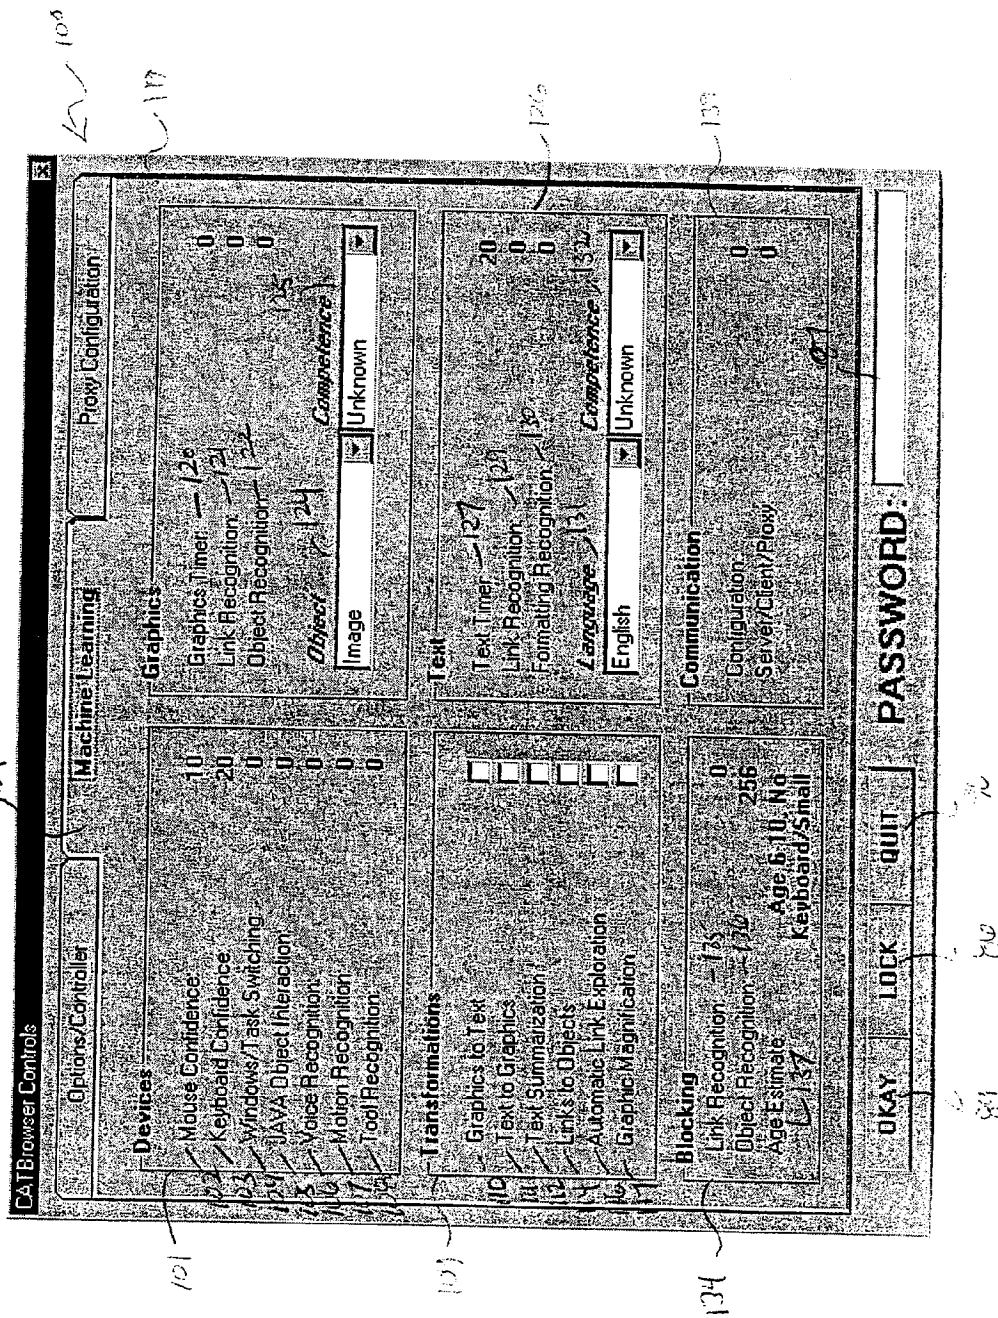 CAT Browser Controls
Options/Controller
Machine Learning
Proxy Configuration
100
Devices
101
102 Mouse Confidence: 10
103 Keyboard Confidence: 20
Windows/Task Switching 0
JAVA Object Interaction 0
Voice Recognition: 0
Motion Recognition: 0
Tool Recognition: 0
Transformations
110 Graphics to Text
Text to Graphics
112 Text Summarization
114 Links to Objects
116 Automatic Link Exploration
Graphic Magnification
Blocking
134
Link Recognition 135 0
Object Recognition 136 256
Age Estimate: Age 6-10, No
137 Keyboard/Small
Graphics
Graphics Timer: 120 0
Link Recognition: 121 0
Object Recognition: 122 0
Object 124 Competence 125
Image Unknown
Text
126
Text Timer 127 20
Link Recognition 129 0
Formating Recognition: 130 0
Language 131 Competence 132
English Unknown
Communication
139
Configuration: 0
Server/Client/Proxy 0
OKAY LOCK QUIT PASSWORD: